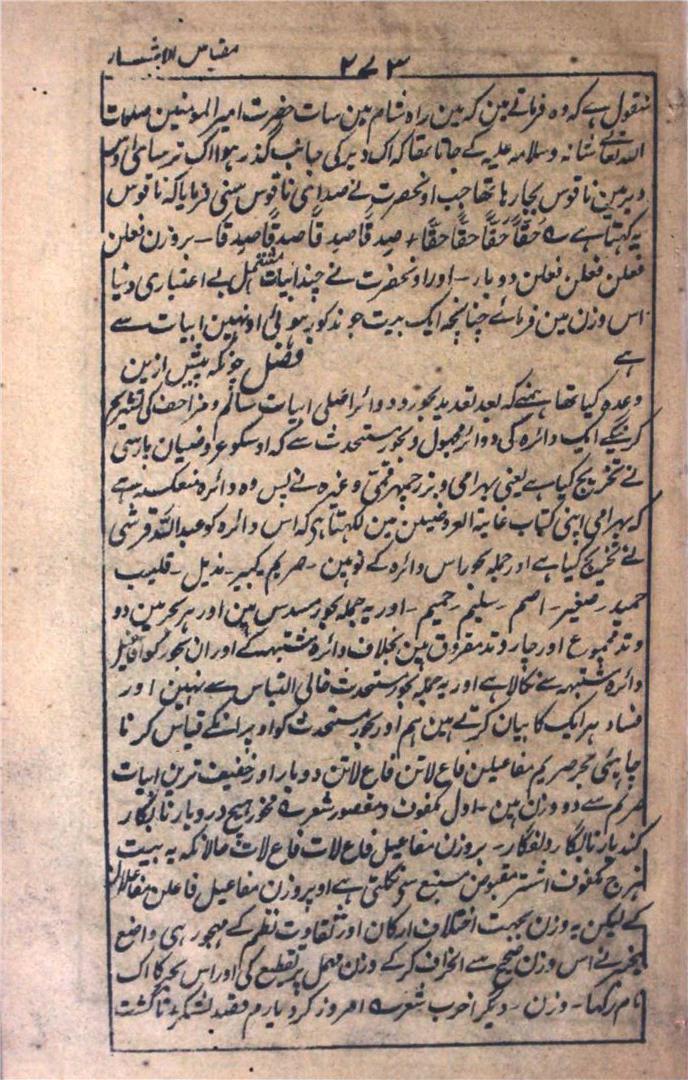 ۲۷۳ مقیاس الاشعار
منقول ہے کہ وہ فرماتے ہین کہ مین راہ شام مین سات حضرت امیر المومنین صلوات
اللہ تعالے شانہ وسلامہ علیہ کے جاتا تھا کہ اک دیر کی جانب گذر ہوا اک ترسا اوس
دیر مین ناقوس بجا رہا تھا جب اونحضرت نے صداے ناقوس سنی فرمایا کہ ناقوس
یہ کہتا ہے حَقًّا حَقًّا حَقًّا حَقًّا + صِدقًا صِدقًا صِدقًا صِدقًا ۔ بروزن فعلن
فعلن فعلن فعلن دوبار ۔ اور اونحضرت نے چند ابیات مشتمل بے اعتباری دنیا
اس وزن مین فرمائے چنانچہ ایک بیت جو مذکور ہوئی اونہین ابیات سے
ہے فصل چونکہ پیش ازین
وعدہ کیا تھا ہمنے کہ بعد تعدید بحور ودوائر اصلی ابیات سالم ومزاحف کی تشریح
کرینگے ایک دائرہ کی دوائر مجہول وبحور مستحدث سے کہ اوسکو عروضیان پارسی
نے تخریج کیا ہے یعنی بہرامی وبزرجمہر قمی وغیرہ نے پس وہ دائرہ منعکسہ ہے
کہ بہرامی اپنی کتاب غایۃ العروضیین مین لکھتا ہی کہ اس دائرہ کو عبداللہ قرشی
نے تخریج کیا ہے اور جملہ بحور اس دائرہ کے نو ہین ۔ صریم ۔ کبیر ۔ بذیل ۔ قلیب
حمید ۔ صغیر ۔ اصم ۔ سلیم ۔ حمیم ۔ اور یہ جملہ بحور مسدس ہین اور ہر بحر مین دو
وتد مجموع اور چار وتد مفروق ہین بخلاف دائرہ مشتبہہ کے اور ان بحور کو
دائرہ مشتبہہ سے نکالا ہے اور یہ جملہ بحور مستحدث خالی التباس سے نہین اور
فساد ہر ایک کا بیان کرتے ہین ہم اور بحور مستحدث کو اوپر انکے قیاس کرنا
چاہئے بحر صریم مفاعیلن فاع لاتن فاع لاتن دوبار اور خفیف ترین ابیات
صریم سے دو وزن ہین ۔ اول مکفوف ومقصور شعر مخور ہیچ در و بار نابکار
کند یار نابکار دلفگار ۔ بروزن مفاعیل فاع لات فاع لات حالانکہ یہ بیت
ہزج مکفوف اشتر مقبوض مسبغ سے نکلتی ہے اوپر وزن مفاعیل فاعلن مفاعلان
کے لیکن یہ وزن بجہت اختلاف ارکان اور تفاوت نظم کے مہجور رہی واضع
بحر نے اس وزن صحیح سے انحراف کرکے وزن مہمل پر تقطیع کی اور اس بحر کا اک
نام رکھا ۔ وزن ۔ دیگر اخرب شعر امروز کرد یارم قصد لشکر ، تا گشت